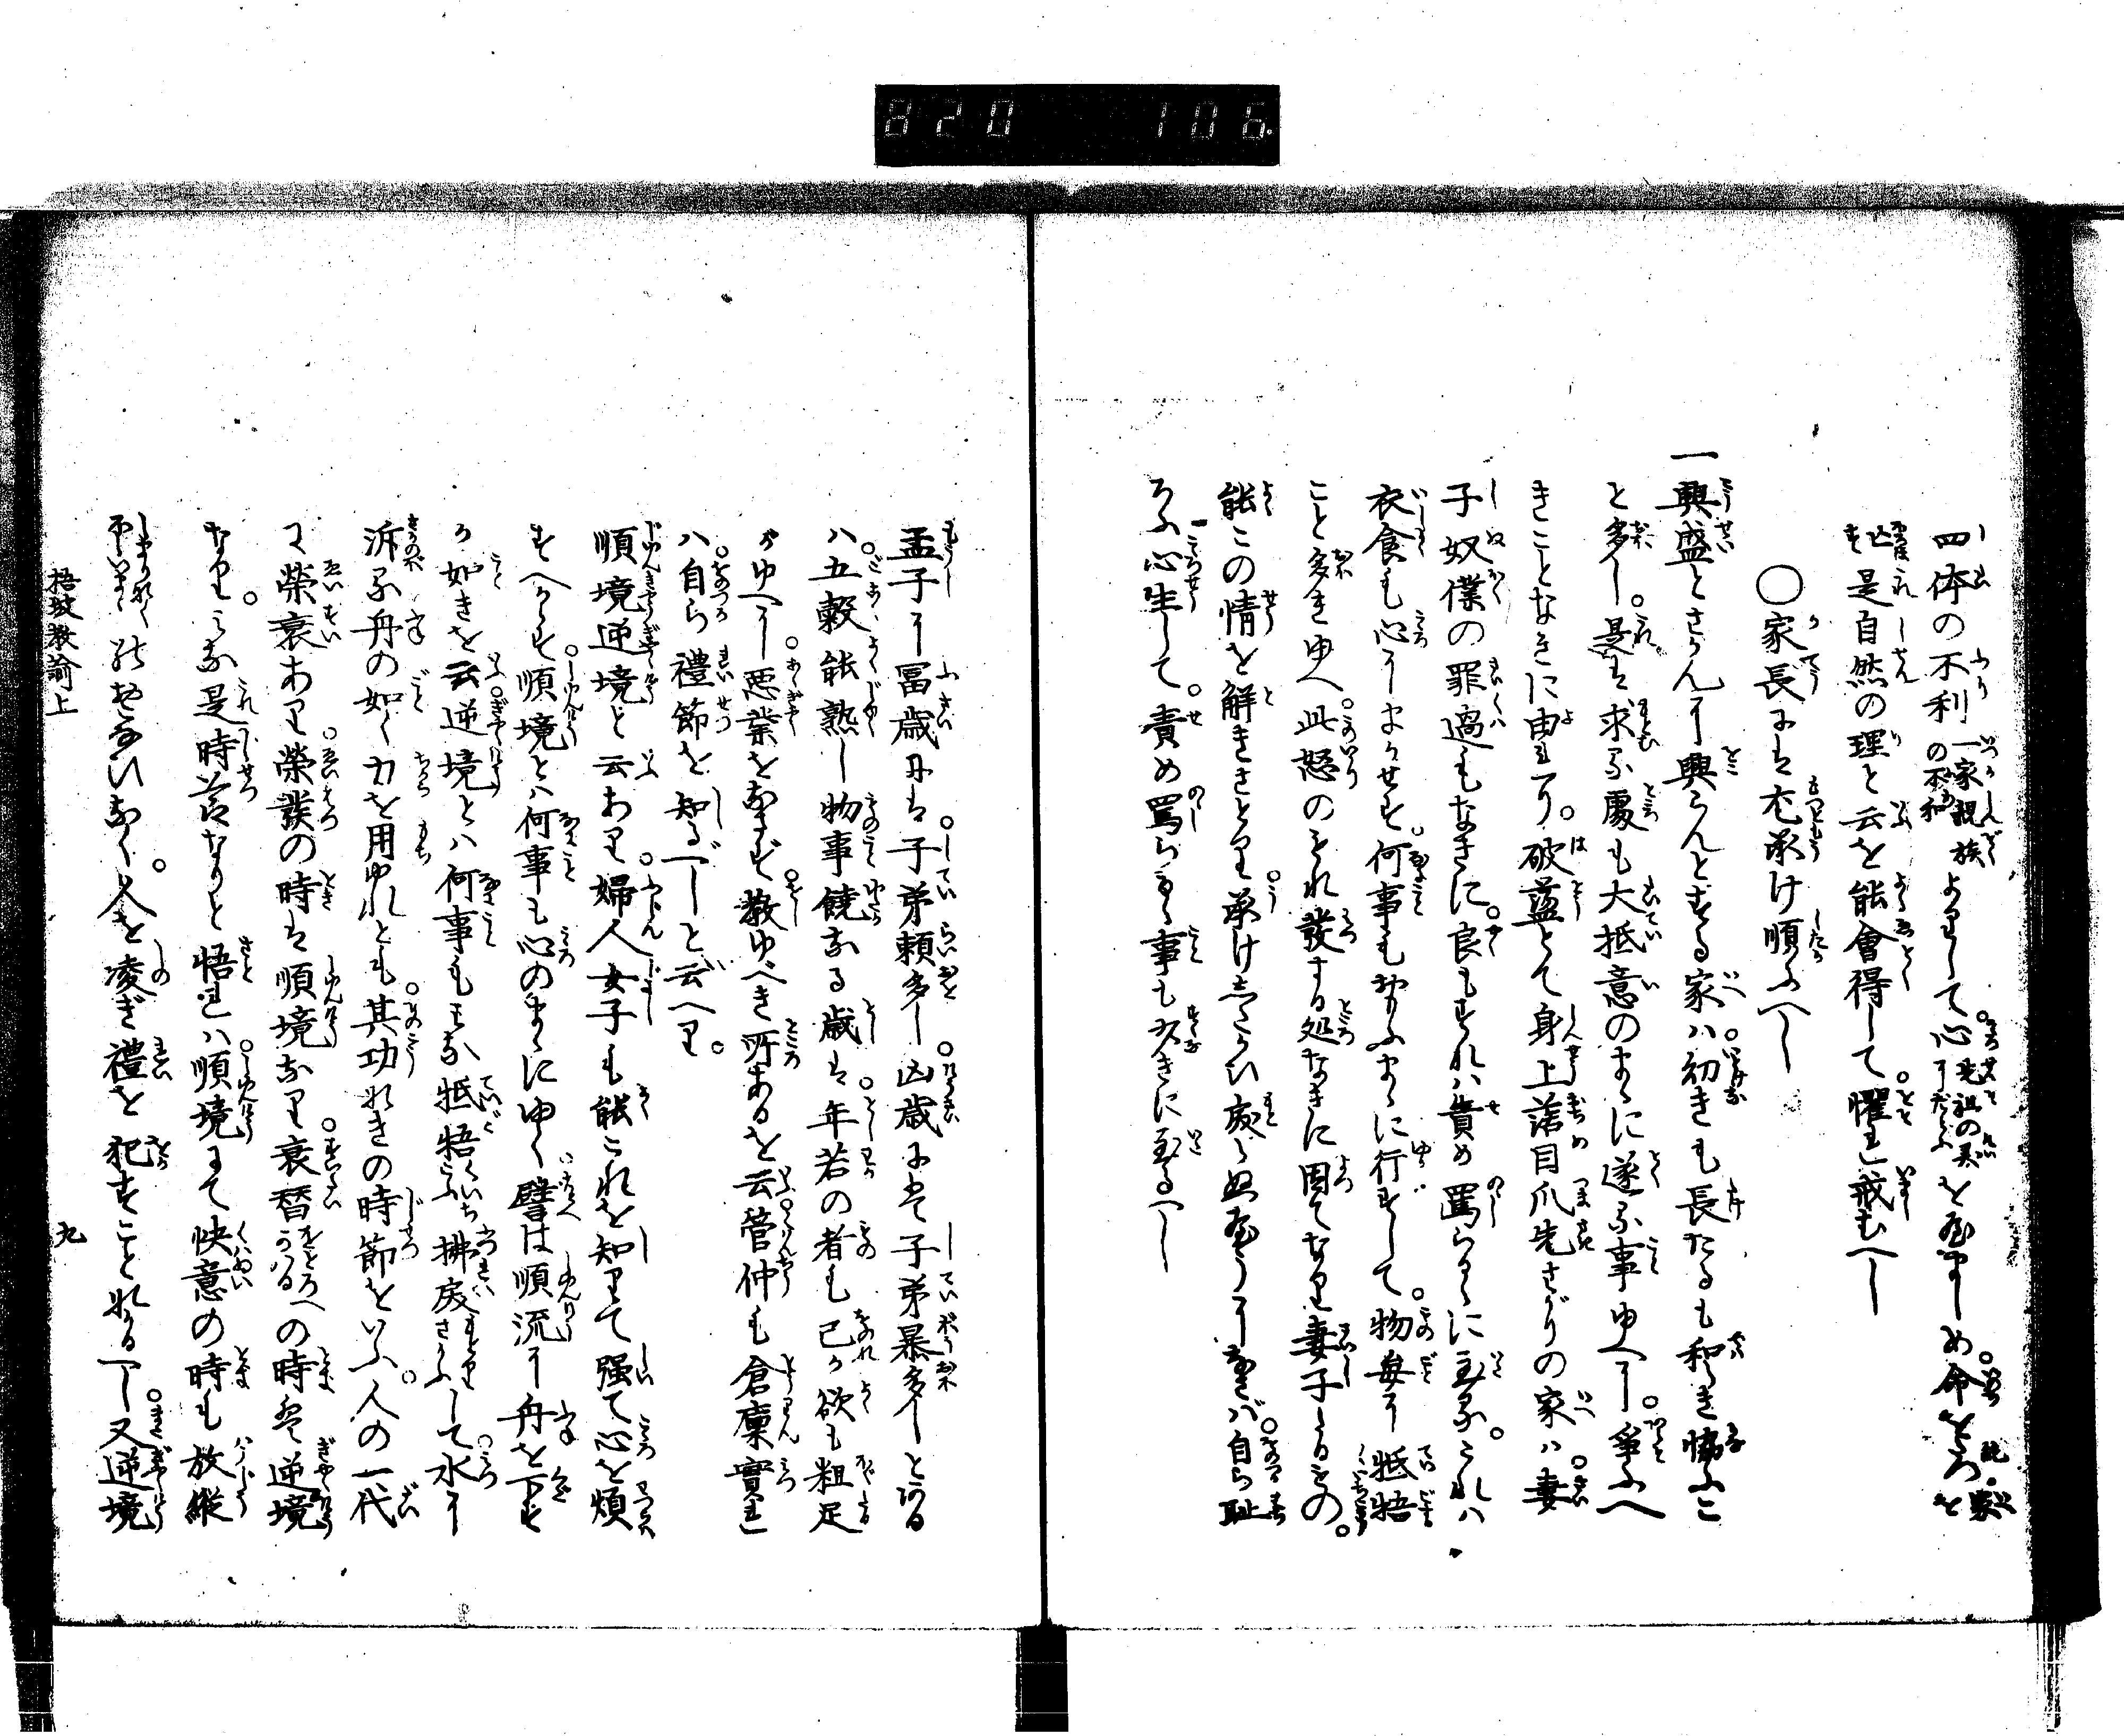 820 106
四体の不利一家親族の不和よりして心先祖の墓を発しめ命をころを
す是自然の理と云を能會得して懼れ戒むへし
〇家長には尤承け順ふへし
一興盛とさかんに興らんとする家ハ初きも長たるも和らき協ふこ
と多し是は求る處も大抵意のまゝに遂る事ゆへに爭ふへ
きことなきに由れり破蕩とて身上諸目爪先さがりの家ハ妻
子奴僕の罪過もなきに良もすれハ責め罵らるゝに至るこれハ
衣食も心にまかせす何事もおもふまゝに行すして物毎に牴牾
こと多きゆへ此怒のそれ發する処なきに因てなり妻子たるもの
能この情を解きさとり承けしたかひ戻らぬやうにせバ自ら耻
る心生して責め罵らるゝ事も少きに至るへし
孟子に冨歳には子弟頼多し凶歳には子弟暴多しとある
ハ五穀能熟し物事饒なる歳は年若の者も己か欲も粗足
かゆへに悪業をなさず教ゆべき所あるを云管仲も倉廩實れ
ハ自ら禮節を知るべしと云へり
順境逆境と云あり婦人女子も能これを知りて强て心を煩
すへからす順境とハ何事も心のまゝにゆく譬は順流に舟を下す
か如きを云逆境とハ何事もみな牴牾ふ拂戻さかふして水に
泝る舟の如く力を用ゆれとも其功なきの時節をいふ人の一代
に榮衰あり榮發の時は順境なり衰替の時は逆境
なりみな是時節なりと悟れハ順境にて快意の時も放縱
人を凌ぎ禮を犯すことなかるへし又逆境
捂坡教諭上 九